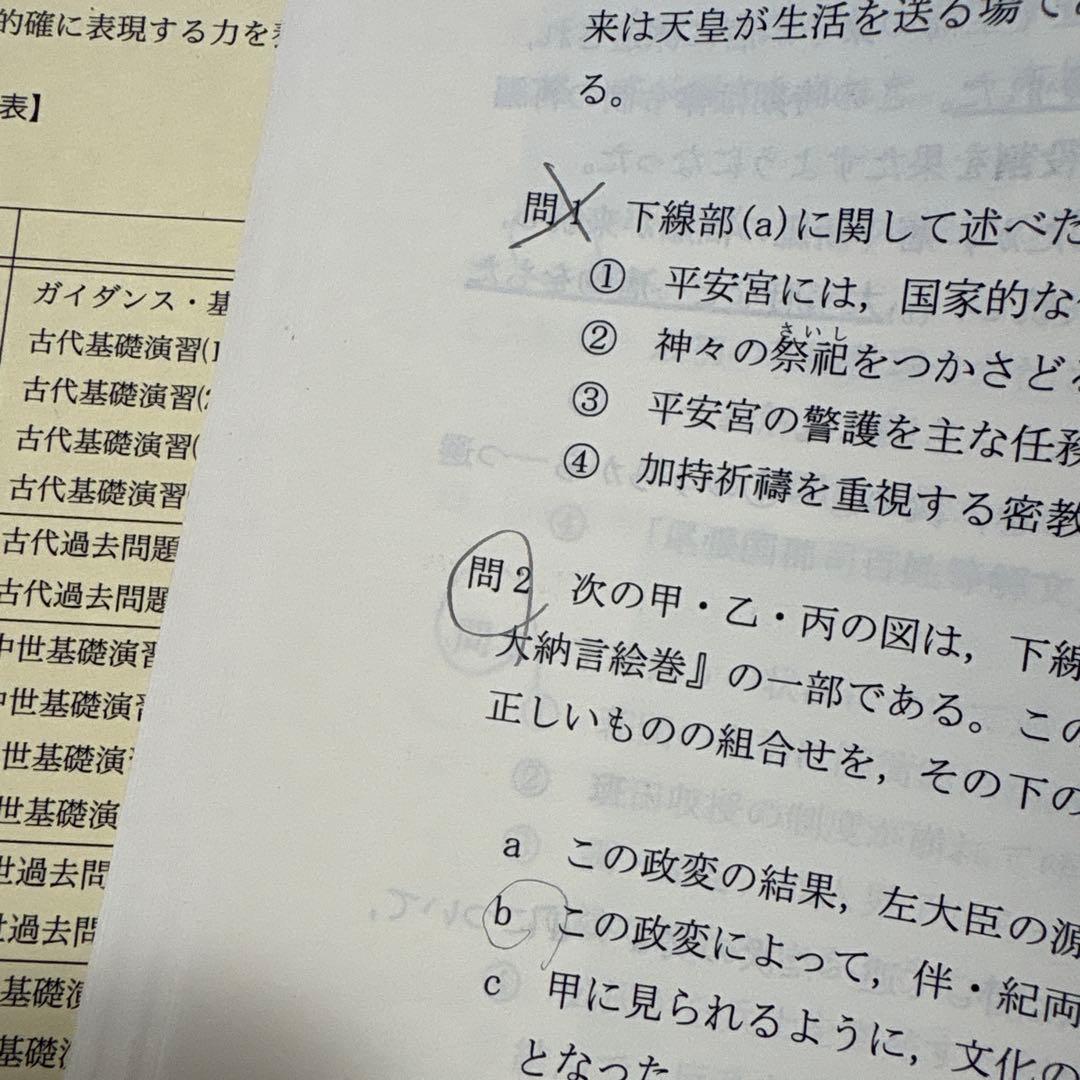 的確に表現する力を
表】
ガイダンス・基
古代基礎演習(1
古代基礎演習(2
古代基礎演習(
古代基礎演習
古代過去問題
古代過去問題
中世基礎演習
中世基礎演習
世基礎演習
世基礎演
世過去問
世過去問
基礎演
基礎演
来は天皇が生活を送る場で
る。
問1 下線部(a)に関して述べた
① 平安宮には，国家的な
② 神々の祭祀をつかさどる
さいし
③ 平安宮の警護を主な任務
④ 加持祈禱を重視する密教
問2 次の甲・乙・丙の図は，下線
大納言絵巻』の一部である。この
正しいものの組合せを，その下の
a この政変の結果，左大臣の源
b この政変によって，伴・紀両
c 甲に見られるように，文化の
となった